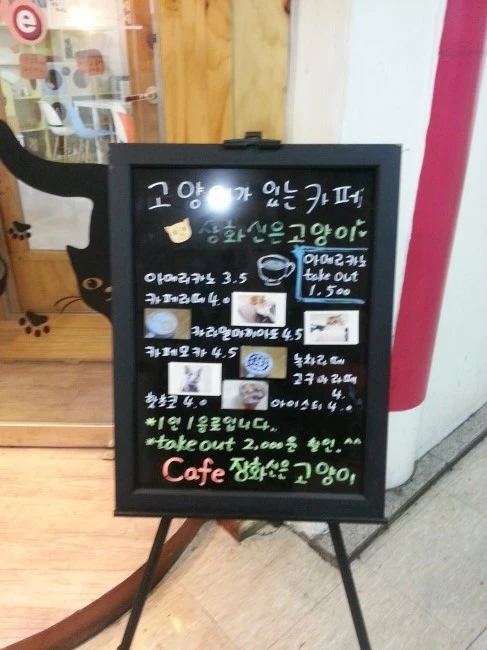 e
고양이가 있는 카페
장화신은고양이
아메리카노
take out
1.500
아메리카노 3.5
카페라떼 4.0
카라멜마끼아또 4.5
카페모카 4.5
녹차라떼
고구마라떼
4.
핫초코 4.0
아이스티 4.0
*1인 1음료입니다..
*take out 2,000원 할인.^^
Cafe 장화신은 고양이